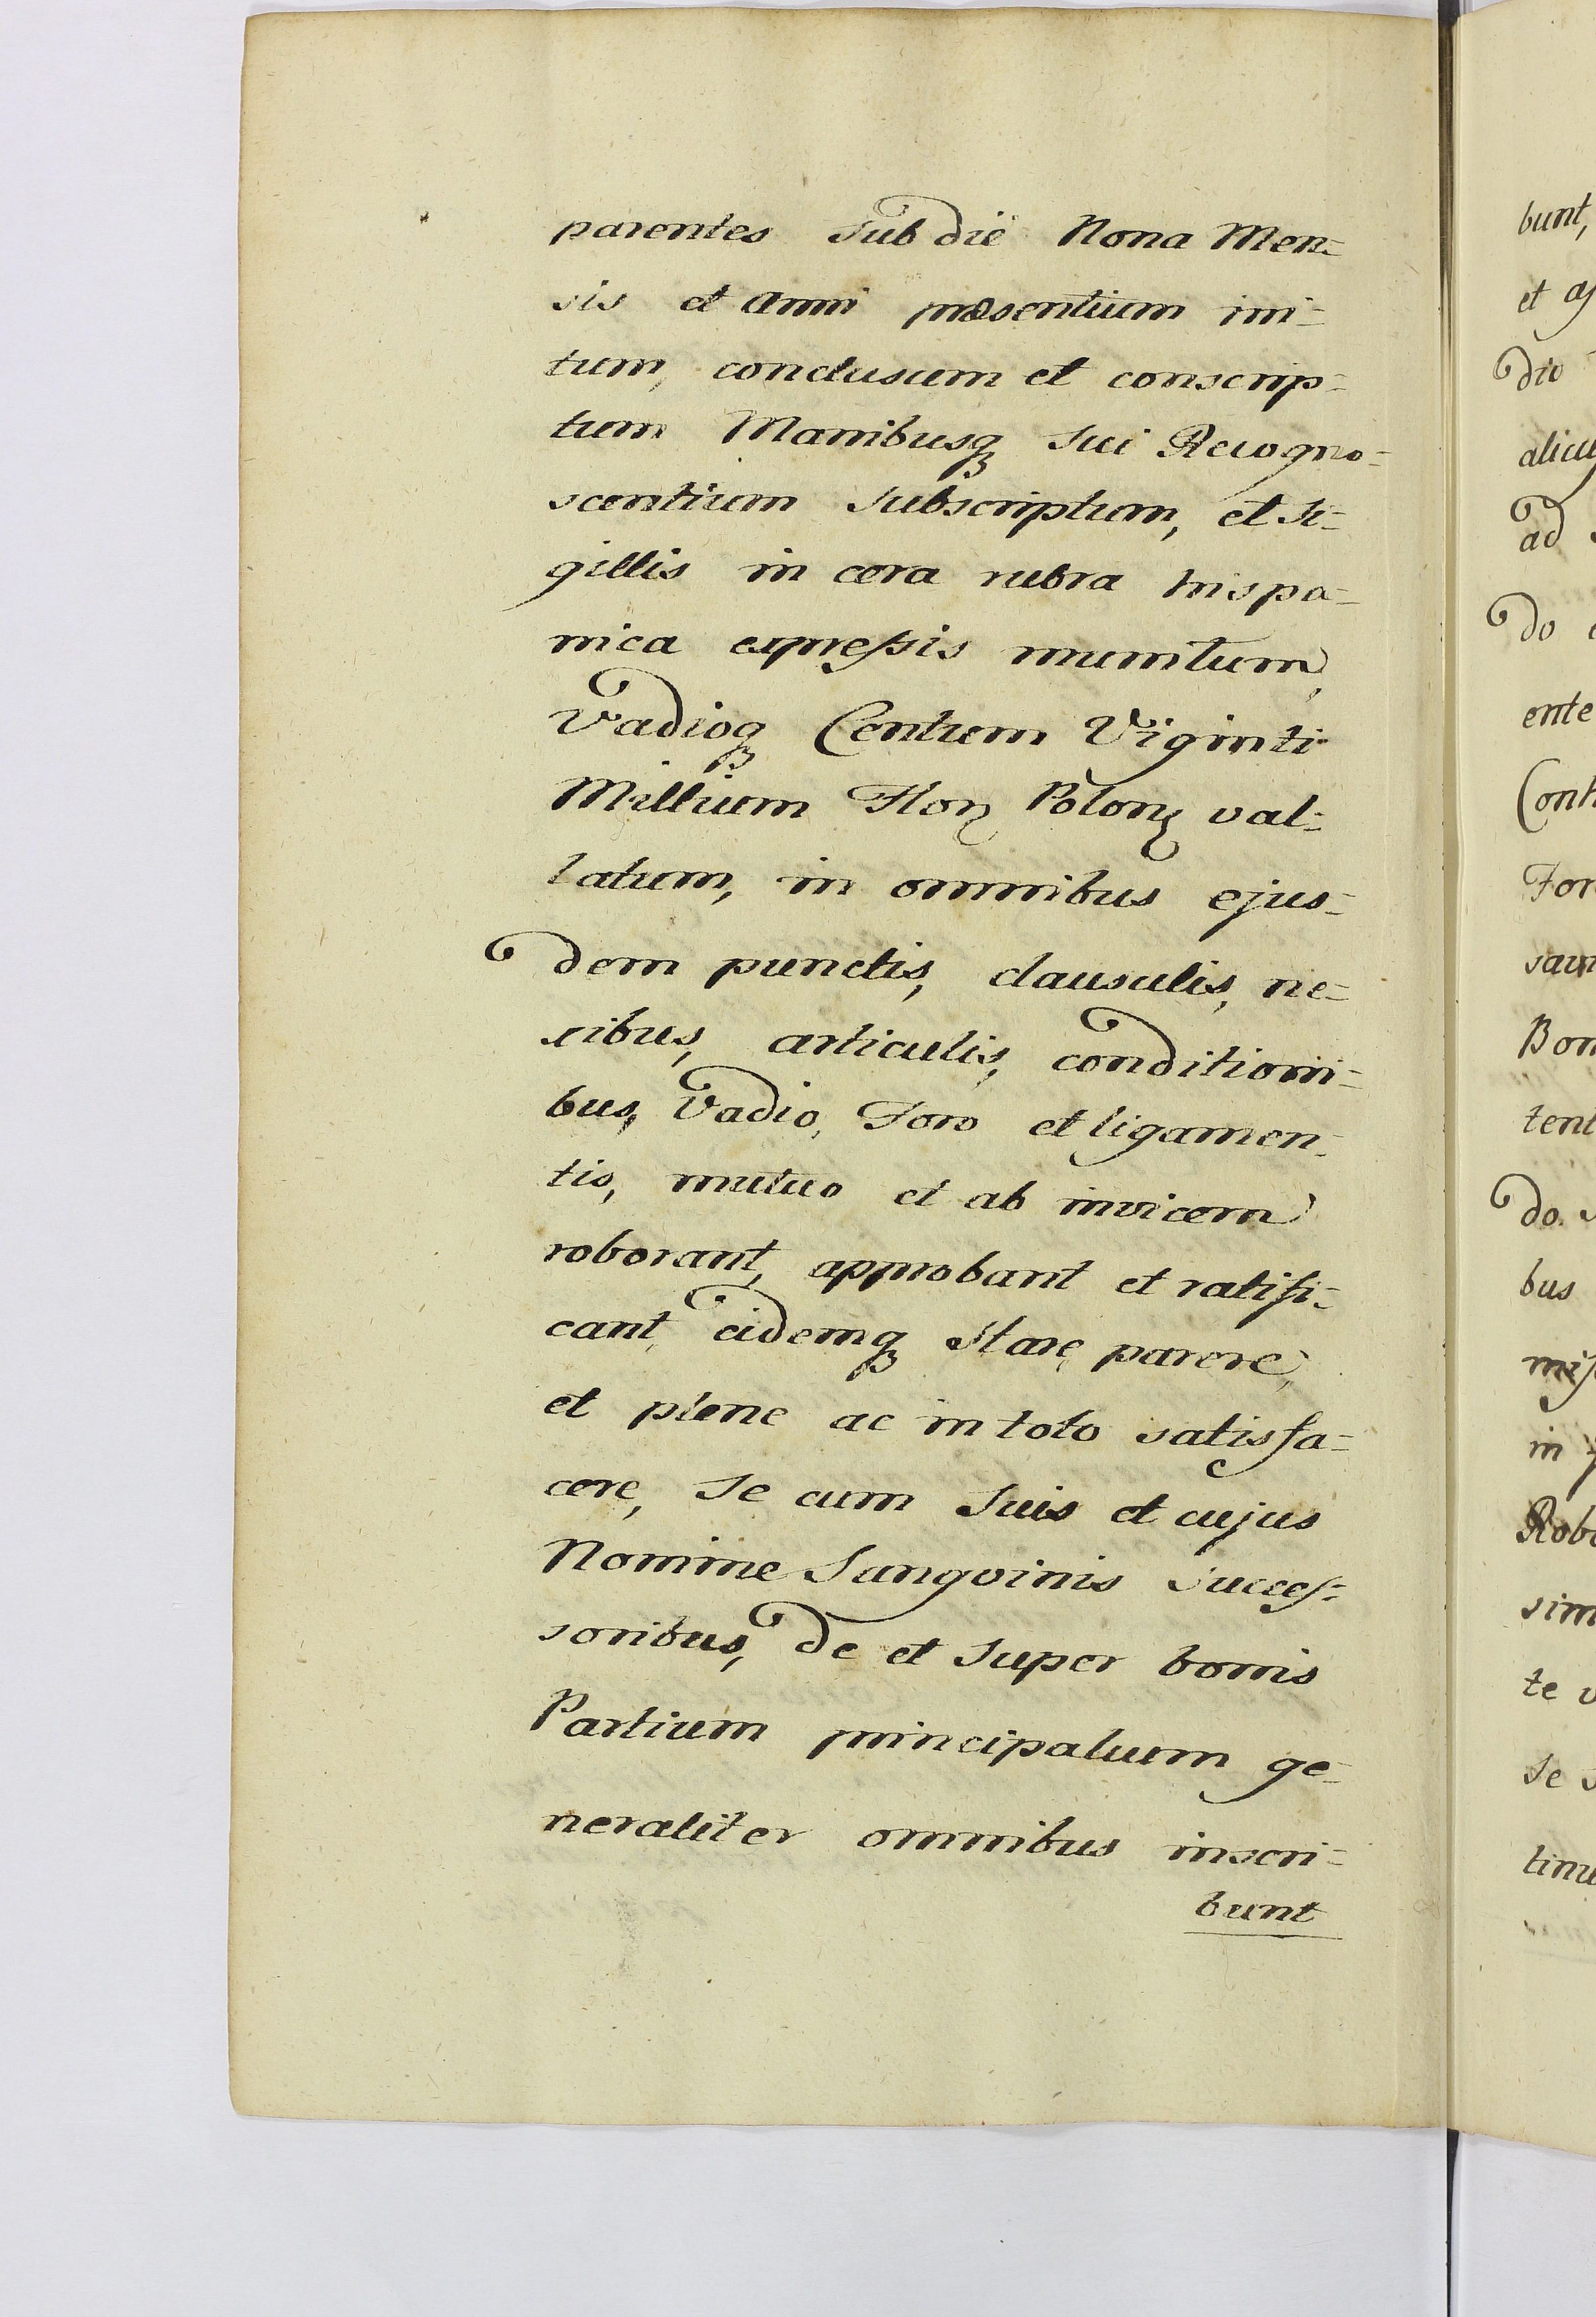 parentes Sub die Nona Men=
sis et Anni præsentium ini=
tum, conclusum et conscrip=
tum Manibusq₃ Sui Recogno=
scentium Subscriptum, et Si=
gillis in cera rubra hispa=
nica expreſsis munitum,
Vadioq₃ Centum Viginti
Millium Flor Polon val=
latum, in omnibus ejus=
dem punctis, clausulis, ne=
xibus, articulis, conditioni=
bus, Vadio, Foro et ligamen=
tis, mutuo et ab invicem
roborant, approbant et ratifi=
cant, eidemq₃ Stare, parere,
et plene ac in toto satisfa=
cere, Se cum Suis et cujus
Nomine Sangvinis Succeſ=
soribus, de et Super bonis
Partium principalium ge=
neraliter omnibus inscri=
bunt
bunt,
et
dio
ad
do
ente
For
Bon
tent
do.
bus
in
Robo
sim
te
Se